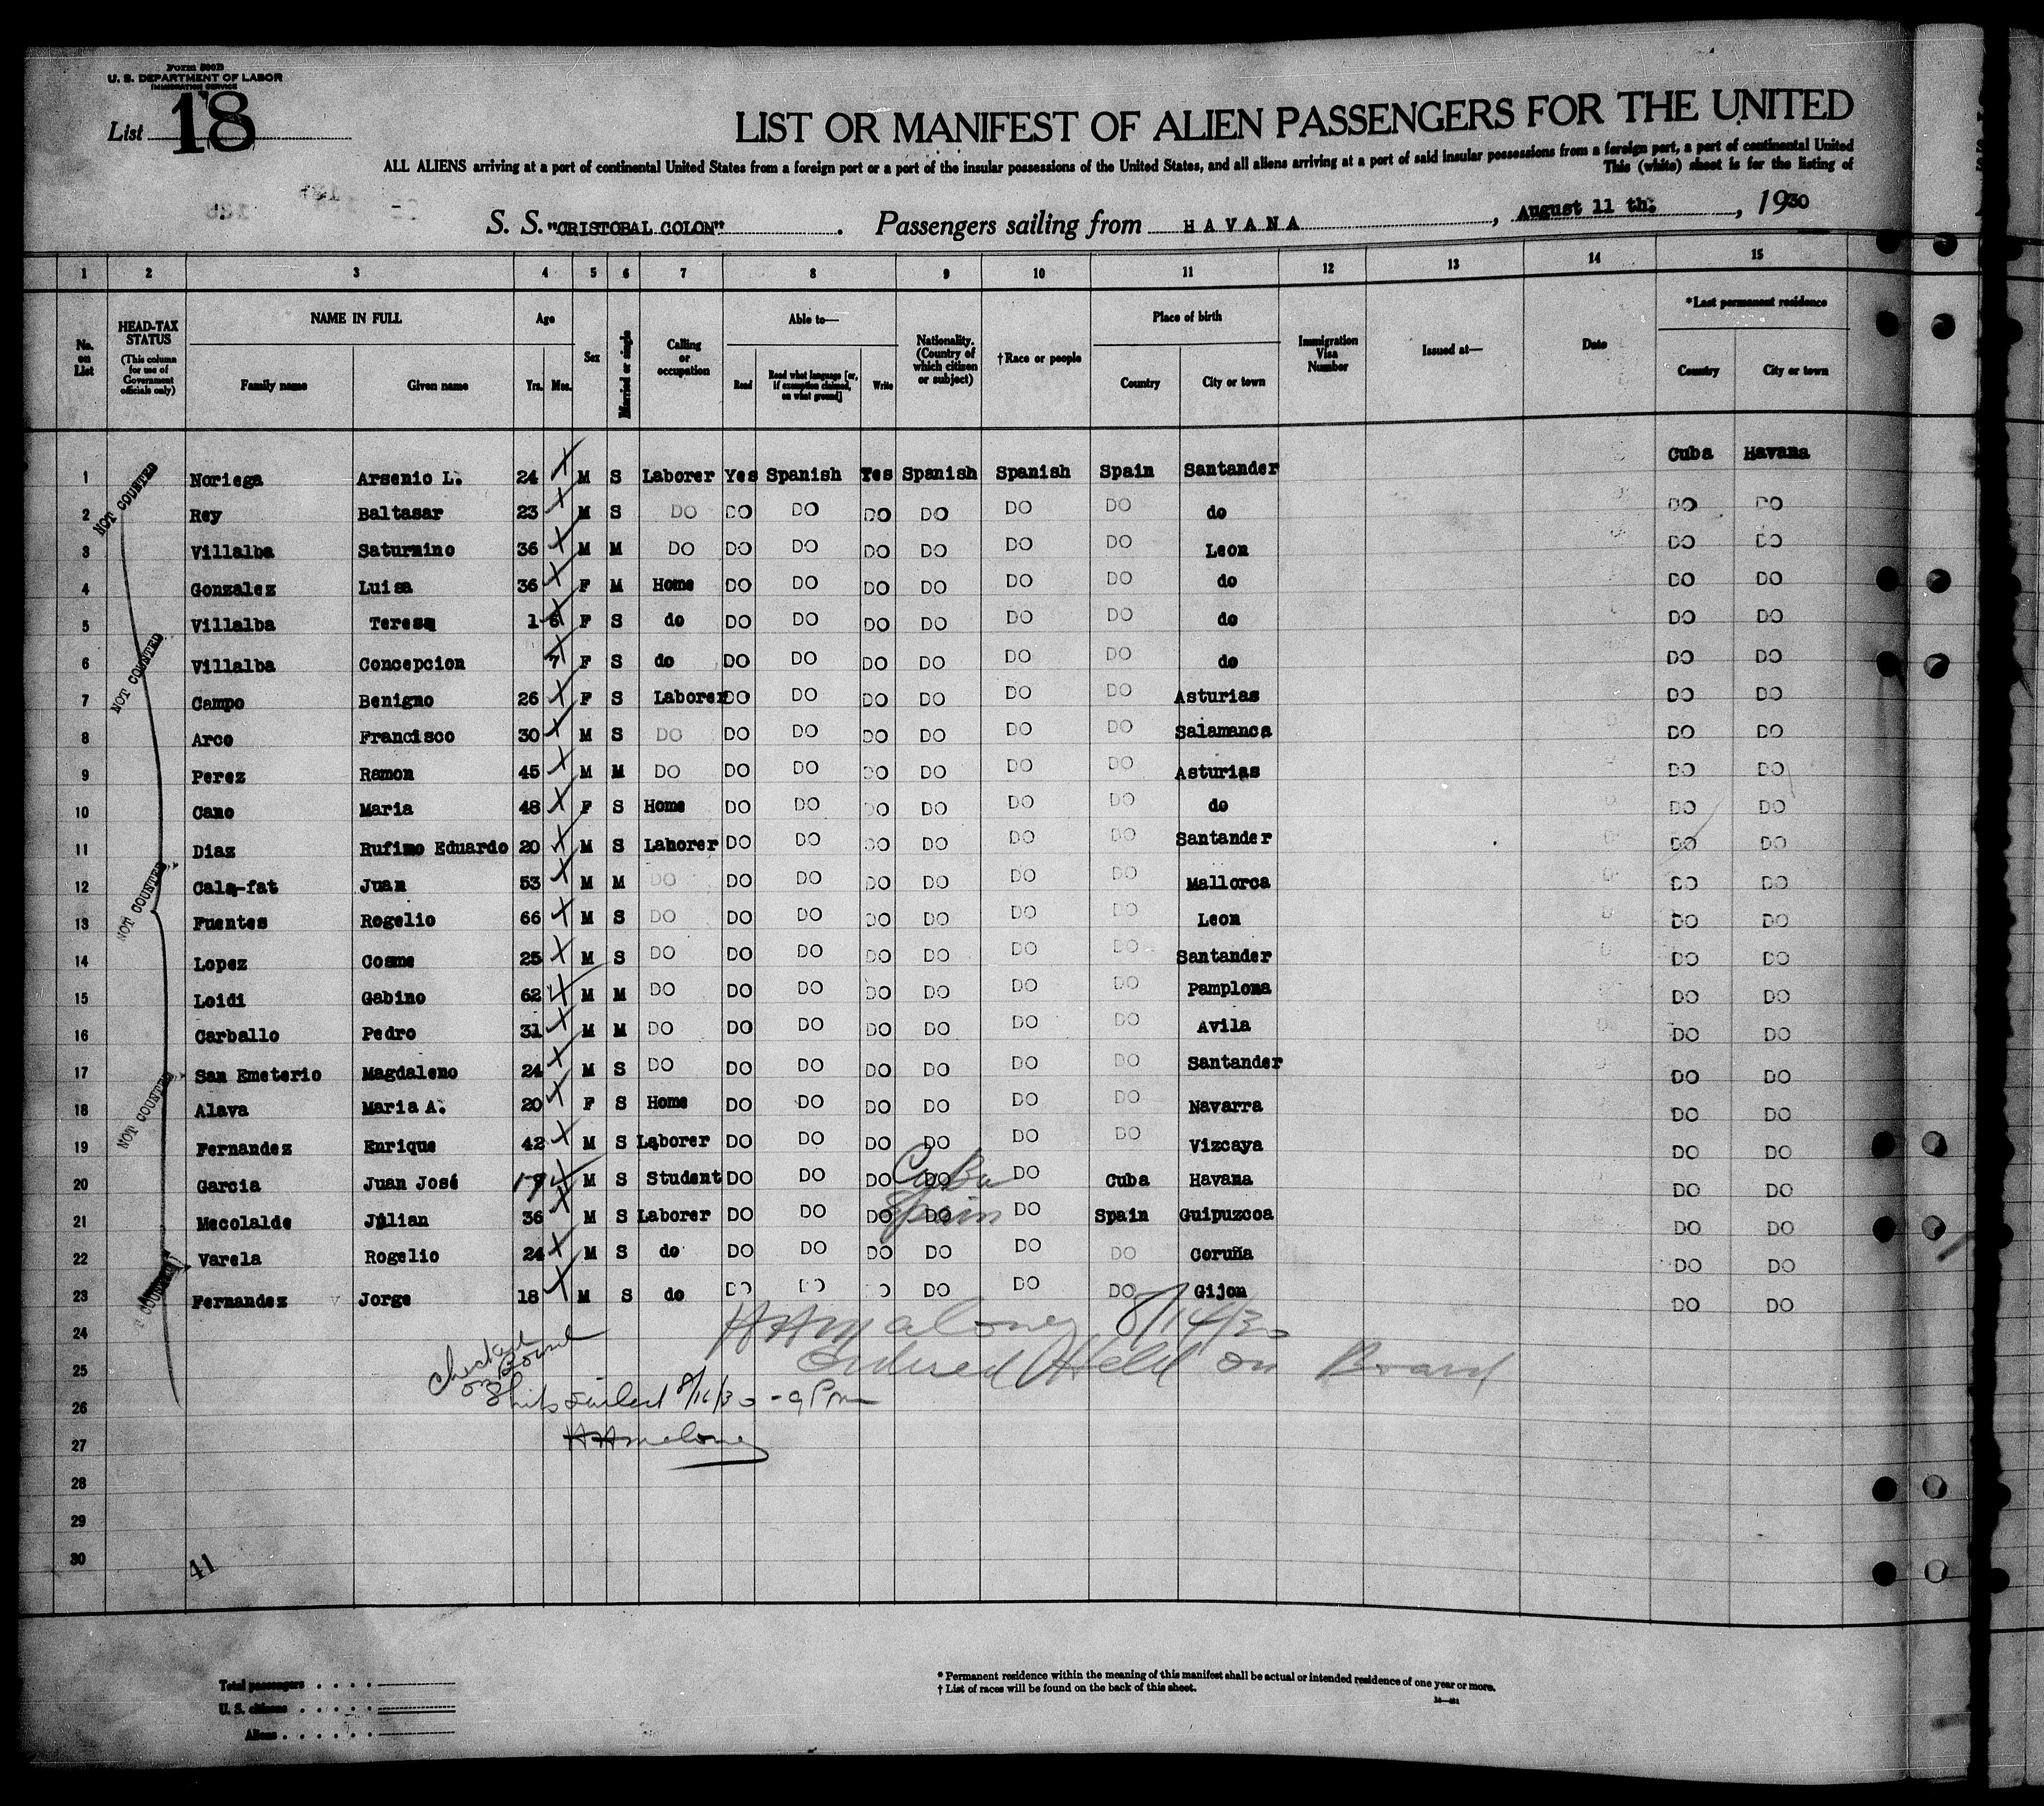 Form 500B
U. S. DEPARTMENT OF LABOR
IMMIGRATION SERVICE
List 18
LIST OR MANIFEST OF ALIEN PASSENGERS FOR THE UNITED
ALL ALIENS arriving at a port of continental United States from a foreign port or a part of the insular possessions of the United States, and all aliens arriving at a port of said insular possessions from a foreign port, a part of continental United
This (white) sheet is for the listing of
S. S. "CRISTOBAL COLON". Passengers sailing from HAVANA, August 11 th., 1930
1 2 3 4 5 6 7 8 9 10 11 12 13 14 15
No. on List
HEAD-TAX STATUS (This column for use of Government officials only)
NAME IN FULL Family name Given name
Age Yrs. Mos.
Sex
Married or single
Calling or occupation
Able to— Read Read what language [or, if exemption claimed, on what ground] Write
Nationality. (Country of which citizen or subject)
†Race or people
Place of birth Country City or town
Immigration Visa Number
Issued at—
Date
*Last permanent residence Country City or town
1 Noriega Arsenio L. 24 M S Laborer Yes Spanish Yes Spanish Spanish Spain Santander Cuba Havana
2 Rey Baltasar 23 M S DO DO DO DO DO DO DO do DO DO
3 Villalba Saturnino 36 M M DO DO DO DO DO DO DO Leon DO DO
4 Gonzalez Luisa 36 F M Home DO DO DO DO DO DO do DO DO
5 Villalba Teresa 1 6 F S do DO DO DO DO DO DO do DO DO
6 Villalba Concepcion 7 F S do DO DO DO DO DO DO do DO DO
7 Campo Benigno 26 F S Laborer DO DO DO DO DO DO Asturias DO DO
8 Arce Francisco 30 M S DO DO DO DO DO DO DO Salamanca DO DO
9 Perez Ramon 45 M M DO DO DO DO DO DO DO Asturias DO DO
10 Cano Maria 48 F S Home DO DO DO DO DO DO do DO DO
11 Diaz Rufino Eduardo 20 M S Laborer DO DO DO DO DO DO Santander DO DO
12 Cala-fat Juan 53 M M DO DO DO DO DO DO DO Mallorca DO DO
13 Fuentes Rogelio 66 M S DO DO DO DO DO DO DO Leon DO DO
14 Lopez Cosme 25 M S DO DO DO DO DO DO DO Santander DO DO
15 Loidi Gabino 62 M M DO DO DO DO DO DO DO Pamplona DO DO
16 Carballo Pedro 31 M M DO DO DO DO DO DO DO Avila DO DO
17 San Emeterio Magdaleno 24 M S DO DO DO DO DO DO DO Santander DO DO
18 Alava Maria A. 20 F S Home DO DO DO DO DO DO Navarra DO DO
19 Fernandez Enrique 42 M S Laborer DO DO DO DO DO DO Vizcaya DO DO
20 Garcia Juan José 17 M S Student DO DO DO DO Cuba DO Cuba Havana DO DO
21 Mecolalde Julian 36 M S Laborer DO DO DO DO Spain DO Spain Guipuzcoa DO DO
22 Varela Rogelio 24 M S do DO DO DO DO DO DO Coruña DO DO
23 Fernandez Jorge 18 M S do DO DO DO DO DO DO Gijon DO DO
NOT COUNTED
NOT COUNTED
NOT COUNTED
NOT COUNTED
COUNTED
24 HAMaloney 8/14/30
25 Ordered Held on Board
Checked on Board
26 Ship sailed 8/16/30 - 9 Pm
27 HAMaloney
28
29
30
41
Total passengers
U. S. citizens
Aliens
* Permanent residence within the meaning of this manifest shall be actual or intended residence of one year or more.
† List of races will be found on the back of this sheet.